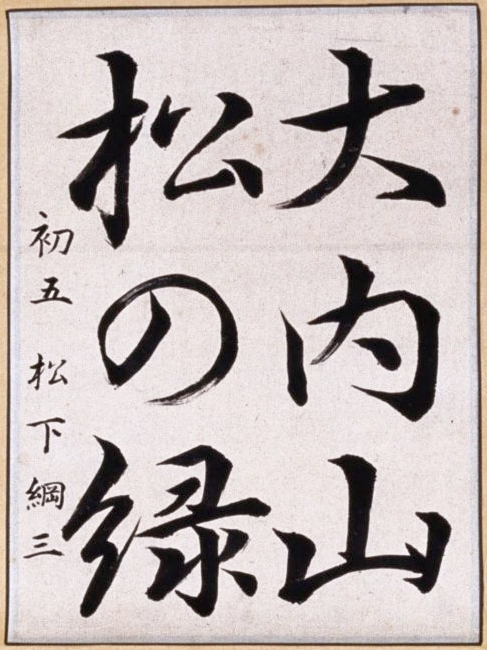 大内山
松の緑
初五 松下綱三